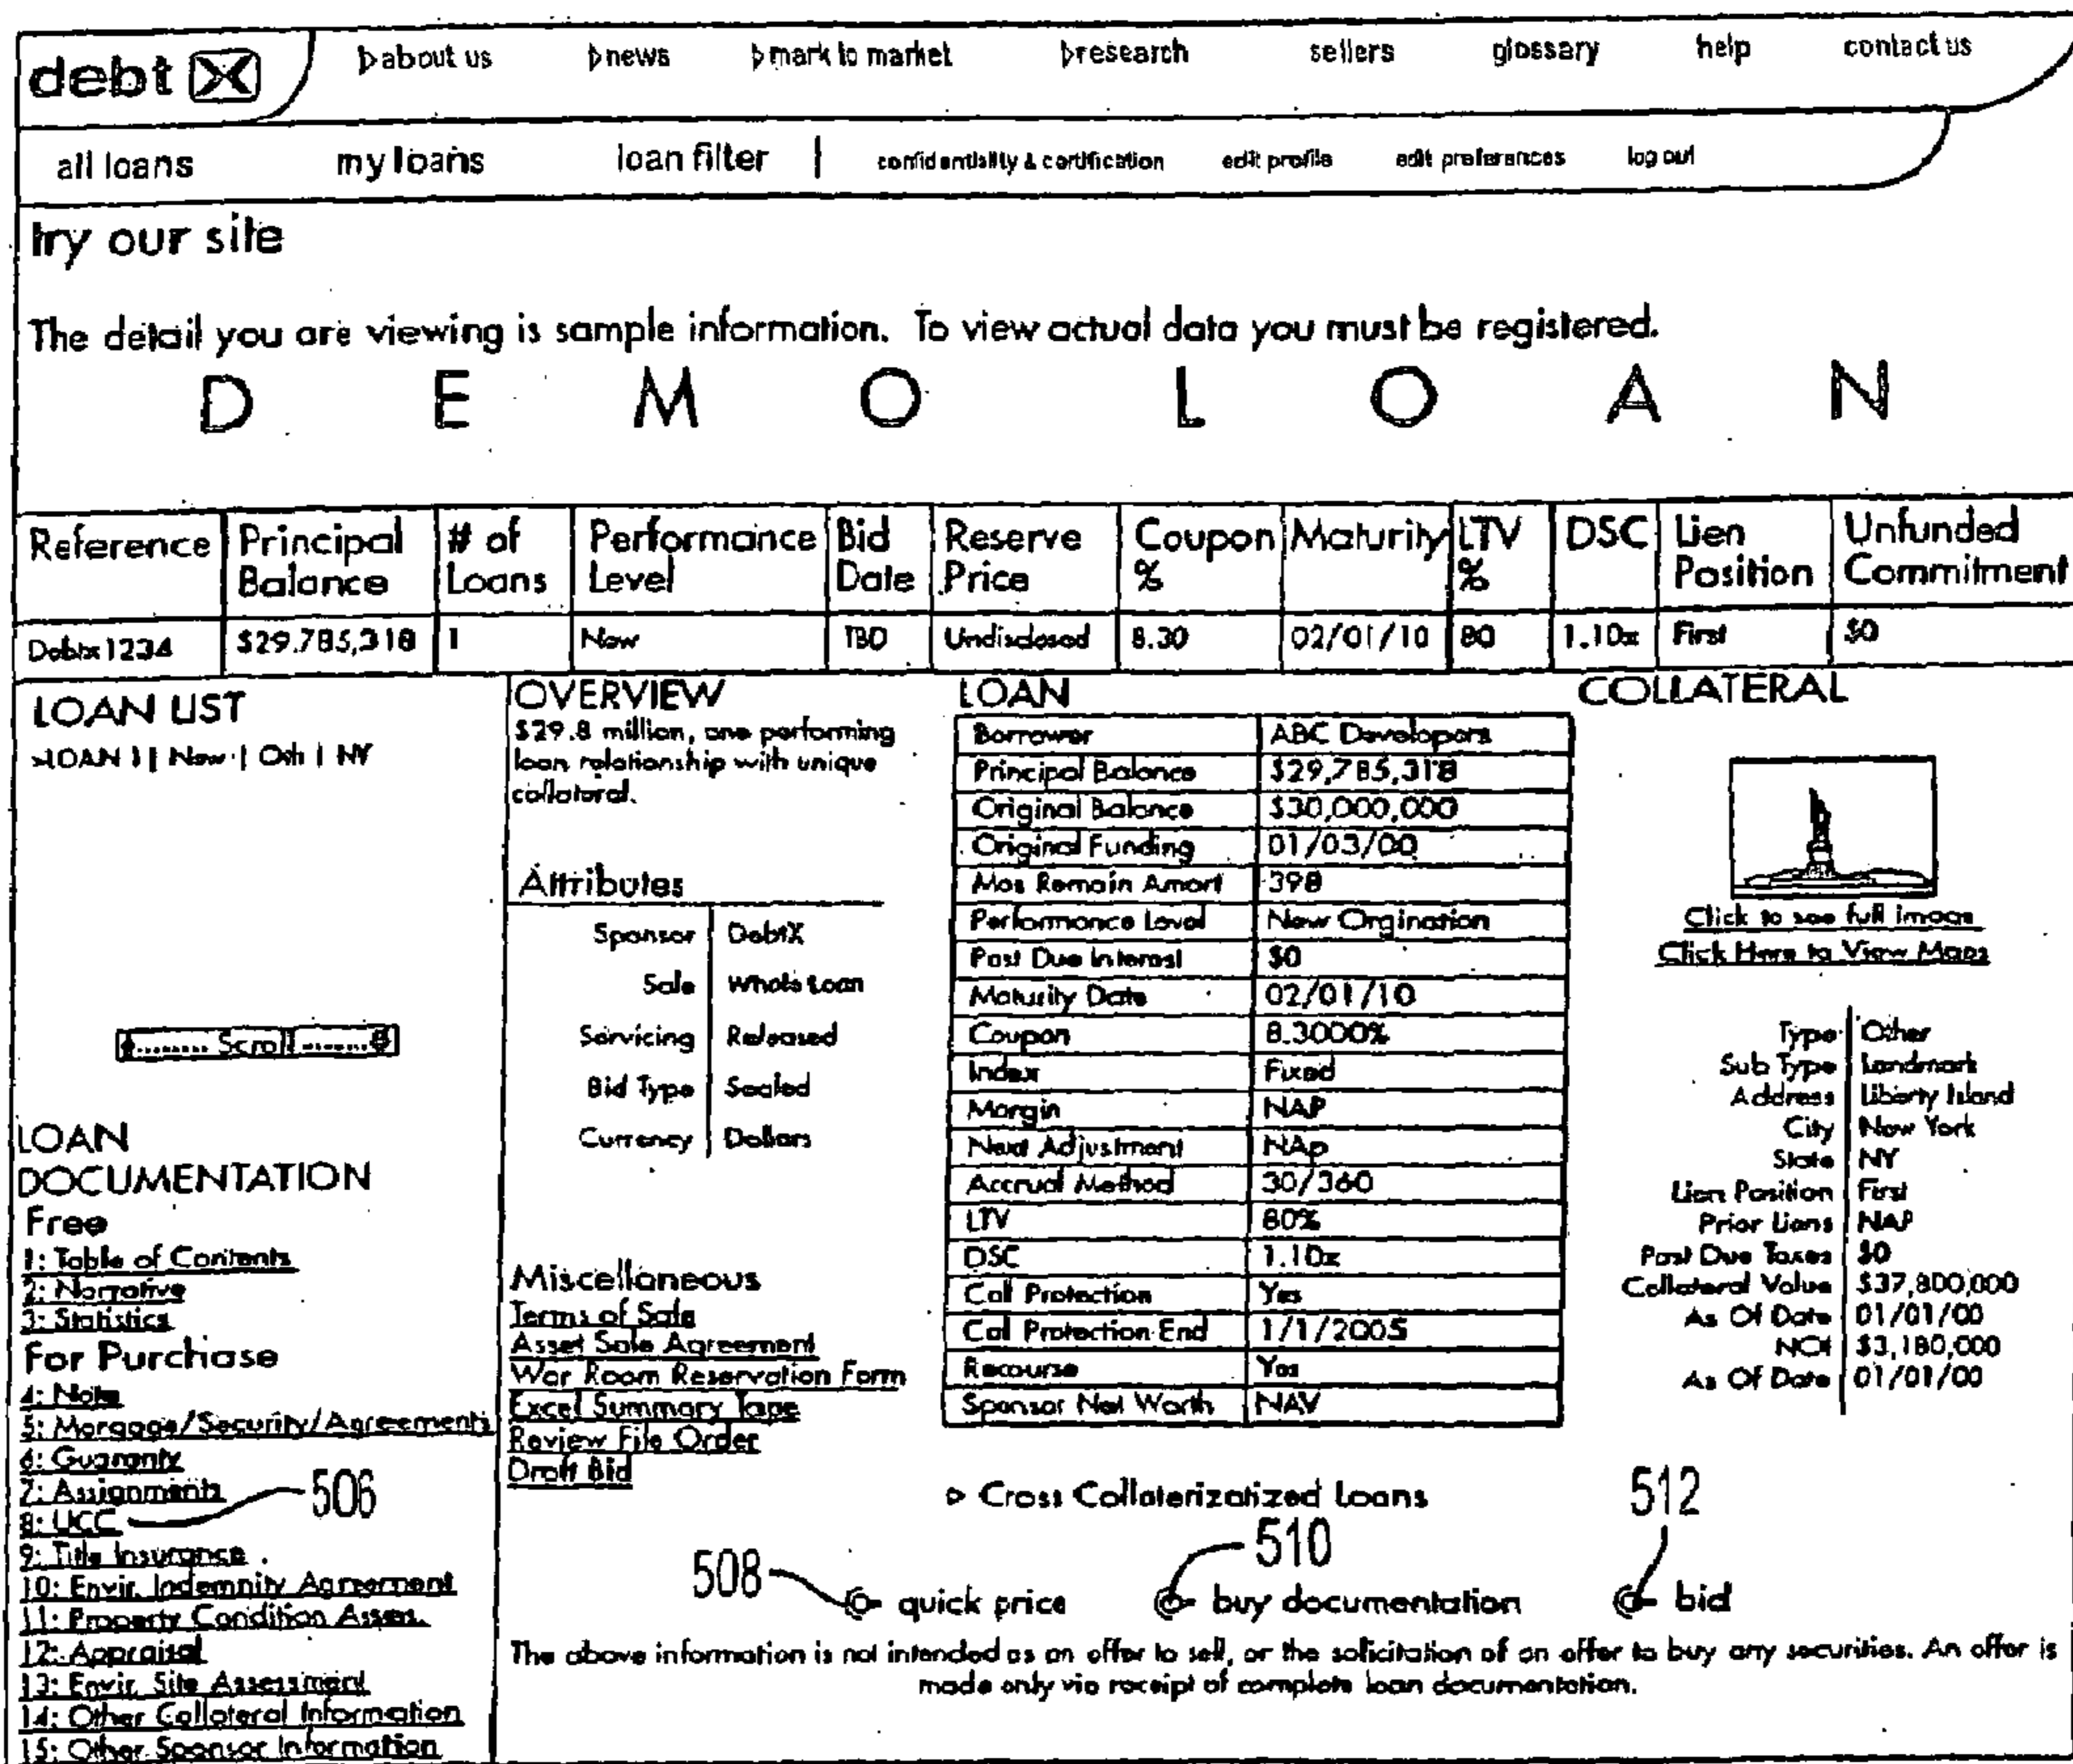 debt X
about us news mark to market research sellers glossary help contact us
all loans my loans loan filter | confidentiality & certification edit profile edit preferences log out
try our site
The detail you are viewing is sample information. To view actual data you must be registered.
D E M O L O A N
Reference Principal Balance # of Loans Performance Level Bid Date Reserve Price Coupon % Maturity LTV % DSC Lien Position Unfunded Commitment
Debtx1234 $29,785,318 1 New TBD Undisclosed 8.30 02/01/10 80 1.10x First $0
LOAN LIST
>LOAN 1 | New | Oth | NY
Scroll
LOAN
DOCUMENTATION
Free
1: Table of Contents
2: Narrative
3: Statistics
For Purchase
4: Note
5: Morgage/Security/Agreements
6: Guaranty
7: Assignments
8: UCC
506
9: Title Insurance
10: Envir. Indemnity Agreement
11: Property Condition Asses.
12: Appraisal
13: Envir. Site Assessment
14: Other Collateral Information
15: Other Sponsor Information
OVERVIEW
$29.8 million, one performing
loan relationship with unique
collateral.
Attributes
Sponsor DebtX
Sale Whole Loan
Servicing Released
Bid Type Sealed
Currency Dollars
Miscellaneous
Terms of Sale
Asset Sale Agreement
War Room Reservation Form
Excel Summary Tape
Review File Order
Draft Bid
LOAN
Borrower ABC Developers
Principal Balance $29,785,318
Original Balance $30,000,000
Original Funding 01/03/00
Mos Remain Amort 398
Performance Level New Orgination
Past Due Interest $0
Maturity Date 02/01/10
Coupon 8.3000%
Index Fixed
Margin NAP
Next Adjustment NAp
Accrual Method 30/360
LTV 80%
DSC 1.10x
Call Protection Yes
Cal Protection End 1/1/2005
Recourse Yes
Sponsor Net Worth NAV
COLLATERAL
Click to see full image
Click Here to View Maps
Type Other
Sub Type Landmark
Address Liberty Island
City New York
State NY
Lien Position First
Prior Liens NAP
Past Due Taxes $0
Collateral Value $37,800,000
As Of Date 01/01/00
NOI $3,180,000
As Of Date 01/01/00
Cross Collaterizatized Loans
508 510 512
quick price buy documentation bid
The above information is not intended as an offer to sell, or the solicitation of an offer to buy any securities. An offer is
made only via receipt of complete loan documentation.